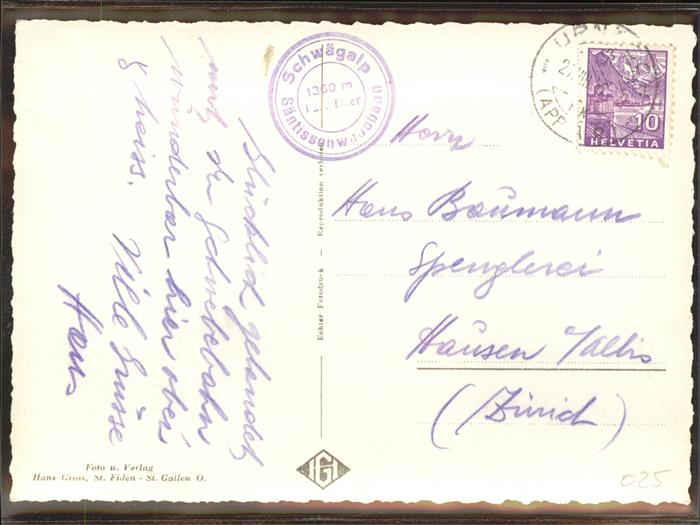 Glücklich gelandet
mit der Schwebebahn
Wunderbar hier oben
& heiss.
Viele Grüsse
Hans
Schwägalp
1360 m
Säntisschwebebahn
URNÄ
(APP
10
HELVETIA
Herrn
Hans Baumann
Spenglerei
Hausen a/Albis
(Zürich)
Echter Fotodruck — Reproduktion verboten
Foto u. Verlag
Hans Gross, St. Fiden - St. Gallen O.
HG
025